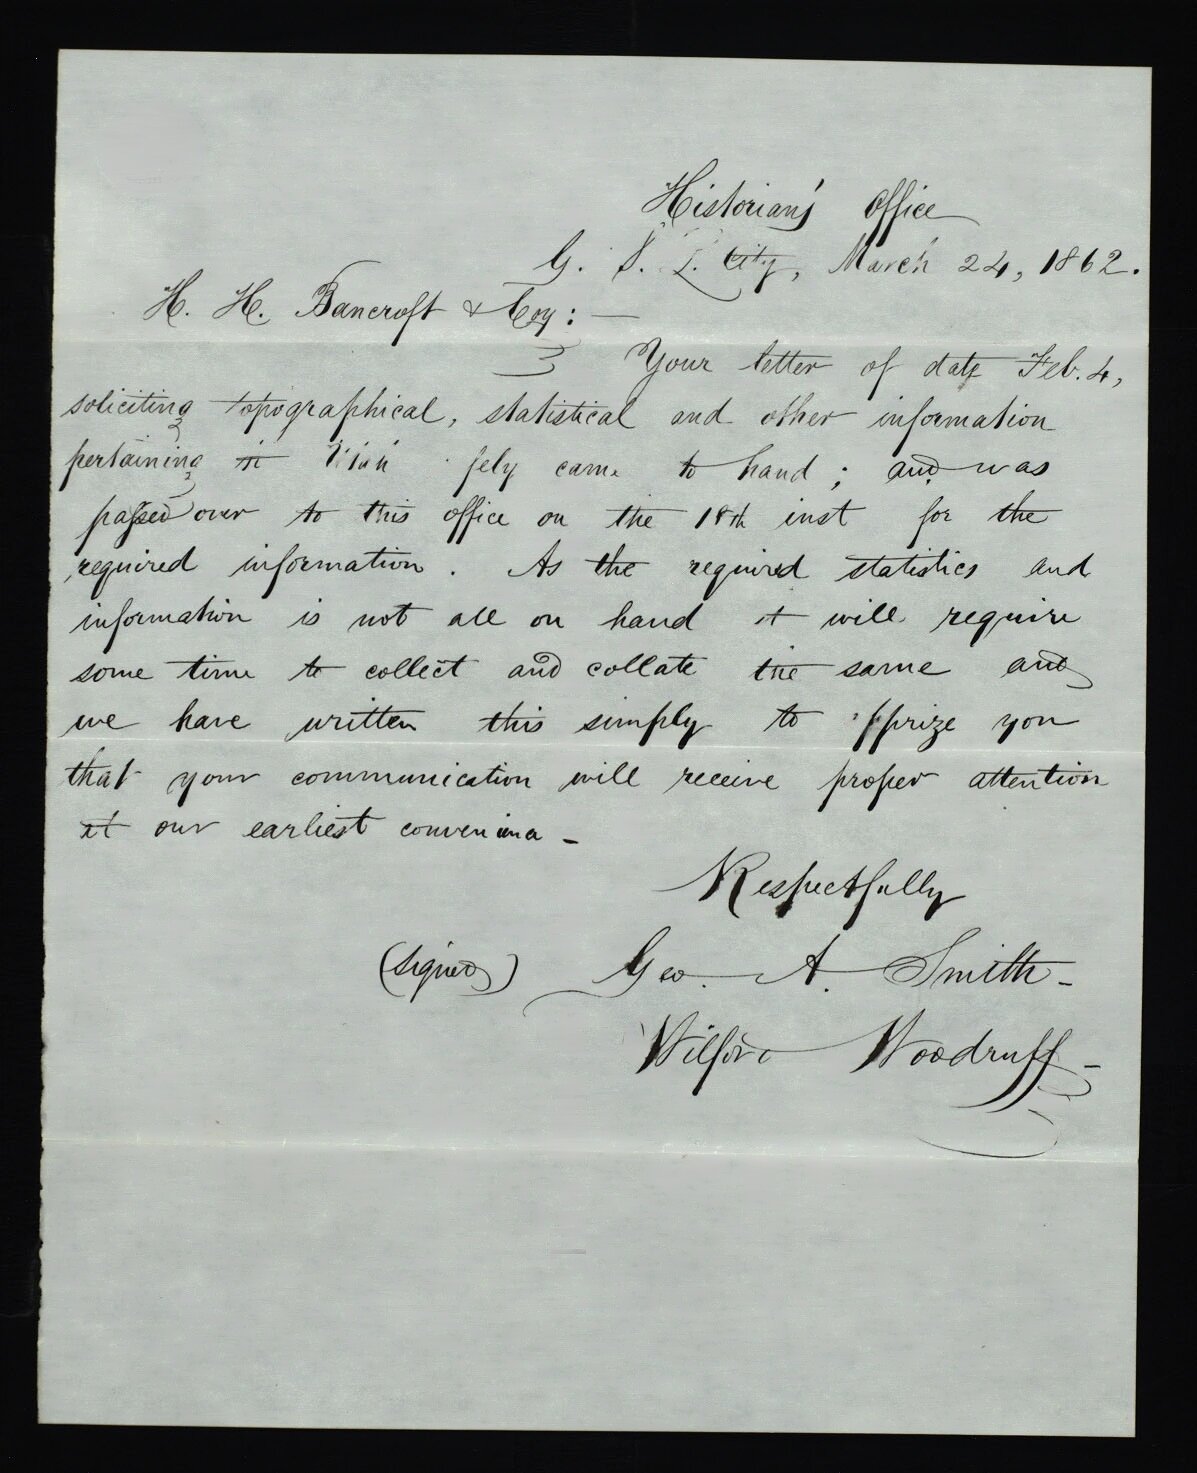 Historian's Office
G. S. L. City, March 24, 1862.
H. H. Bancroft & Coy: —
Your letter of date Feb. 4,
soliciting topographical, statistical and other information
pertaining to Utah came to hand ; and was
passed over to this office on the 18th inst for the
required information . As the required statistics and
information is not all on hand it will require
some time to collect and collate the same and
we have written this simply to apprize you
that your communication will receive proper attention
at our earliest convenience -
Respectfully
(Signed) Geo. A. Smith -
Wilford Woodruff -